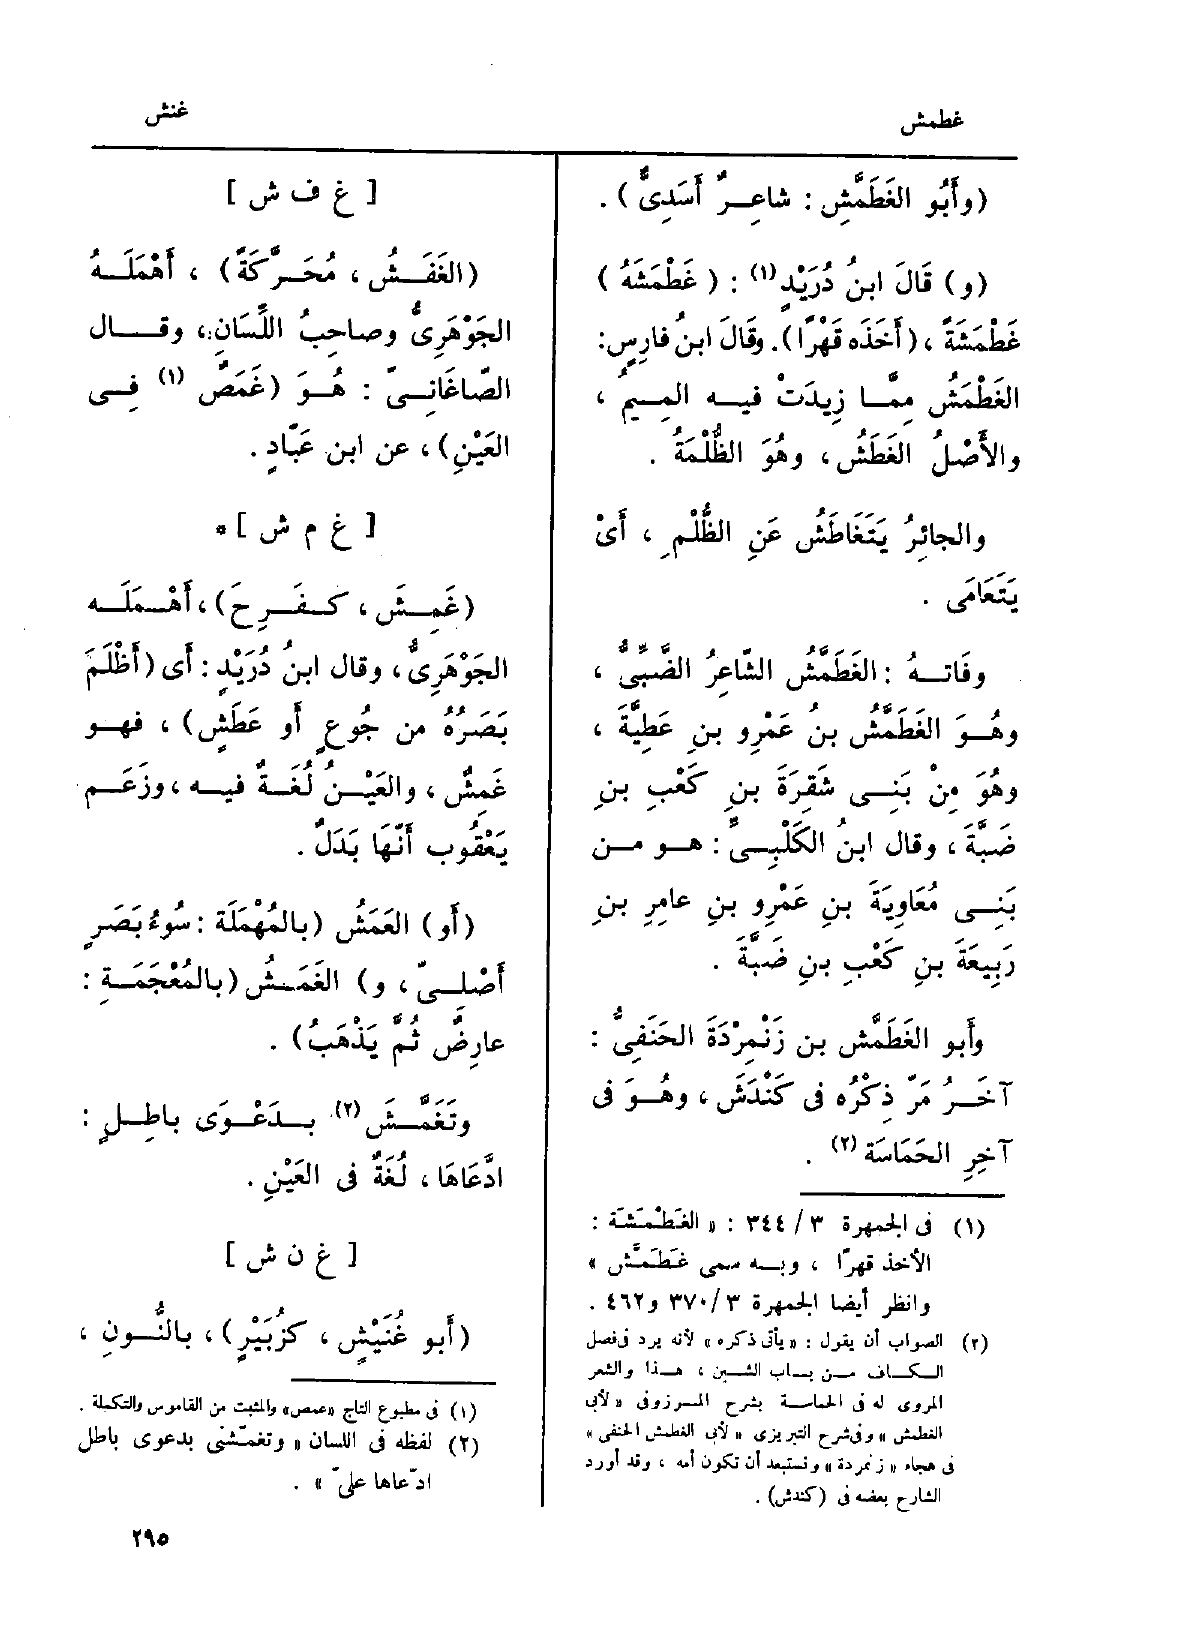 غطمش
غنش
(وأَبُو الغَطَمَّشِ : شاعِــرٌ أَسَدِىٌّ ) .
(و) قَالَ ابنُ دُرَيْدٍ (١) : ( غَطْمَشَهُ )
غَطْمَشَةً ، (أَخَذَه قَهْرًا). وقَالَ ابنُ فارِسٍ:
الغَطْمَشُ مِمَّـا زِيدَتْ فيـه المِـيمُ ،
والأَصْلُ الغَطَشُ ، وهُوَ الظُّلْمَةُ .
والجائِرُ يَتَغَاطَشُ عَنِ الظُّلْمِ ، أَىْ
يَتَعَامَى .
وفَاتـهُ : الغَطَمَّشُ الشّاعِرُ الضَّبِّىُّ ،
وهُـوَ الغَطَمَّشُ بنُ عَمْرِو بنِ عَطِيَّةَ ،
وهُوَ مِنْ بَنِـى شَقِرَةَ بنِ كَعْبِ بنِ
ضَبَّةَ ، وقال ابنُ الكَلْبِـىّ : هـو مـن
بَنِـى مُعَاوِيَةَ بنِ عَمْرِو بنِ عامِرِ بنِ
رَبِيعَةَ بنِ كَعْبِ بنِ ضَبَّةَ .
وأَبو الغَطَمَّش بن زَنْمِرْدَةَ الحَنَفِىُّ :
آخَـرُ مَرّ ذِكْرُه فى كَنْدَش ، وهُـوَ فى
آخِرِ الحَمَاسَة (٢) .
(١) فى الجمهرة ٣/ ٣٤٤ : « الغَطْمَشَة :
الأخذ قهرًا ، وبـه سمى غَطَمَّش »
وانظر أيضا الجمهرة ٣/ ٣٧٠ و٤٦٢ .
(٢) الصواب أن يقول : « يأتى ذكره » لأنه يرد فى فصل
الـكـاف مـن بـاب الشـين ، هـذا والشعر
المروى له فى الحماسـة بشرح المـرزوقى « لأبى
الغطمش » وفى شرح التبريزى « لأبى الغطمش الحنفى »
فى هجاء « زنمردة » ونستبعد أن تكون أمه ، وقد أورد
الشارح بعضه فى (كندش) .
[ غ ف ش ]
(الغَفَـشُ ، مُحَـرَّكَةً) ، أَهْمَلَـهُ
الجَوْهَرِىُّ وصاحِبُ اللِّسَانِ ، وقـال
الصّاغَانِـىّ : هُـوَ (غَمَصٌ (١) فِـى
العَيْنِ) ، عن ابن عَبّادٍ .
[ غ م ش ] *
(غَمِـشَ ، كـفَـرِحَ) ، أَهْـمَلَـه
الجَوْهَرِىُّ ، وقال ابنُ دُرَيْدٍ : أَى (أَظْلَمَ
بَصَرُهُ من جُوعٍ أَو عَطَشٍ) ، فهو
غَمِشٌ ، والعَيْـنُ لُغَـةٌ فيـه ، وزَعَـم
يَعْقُوب أَنَّهَا بَدَلٌ .
(أَو) العَمَشُ (بالمُهْمَلَة : سُوءُ بَصَرٍ
أَصْلِـىّ ، و) الغَمَـشُ (بالمُعْجَمَـةِ :
عارِضٌ ثُمَّ يَذْهَبُ) .
وتَغَمَّـشَ (٢) بـدَعْـوَى باطِـلٍ :
ادَّعَاهَا ، لُغَةٌ فى العَيْنِ .
[ غ ن ش ]
(أَبو غُنَيْشٍ ، كزُبَيْرٍ) ، بالنُّـونِ ،
(١) فى مطبوع التاج «عمص» والمثبت من القاموس والتكملة .
(٢) لفظه فى اللسان « وتغمّشى بدعوى باطل
ادّعاها علىّ » .
٢٩٥